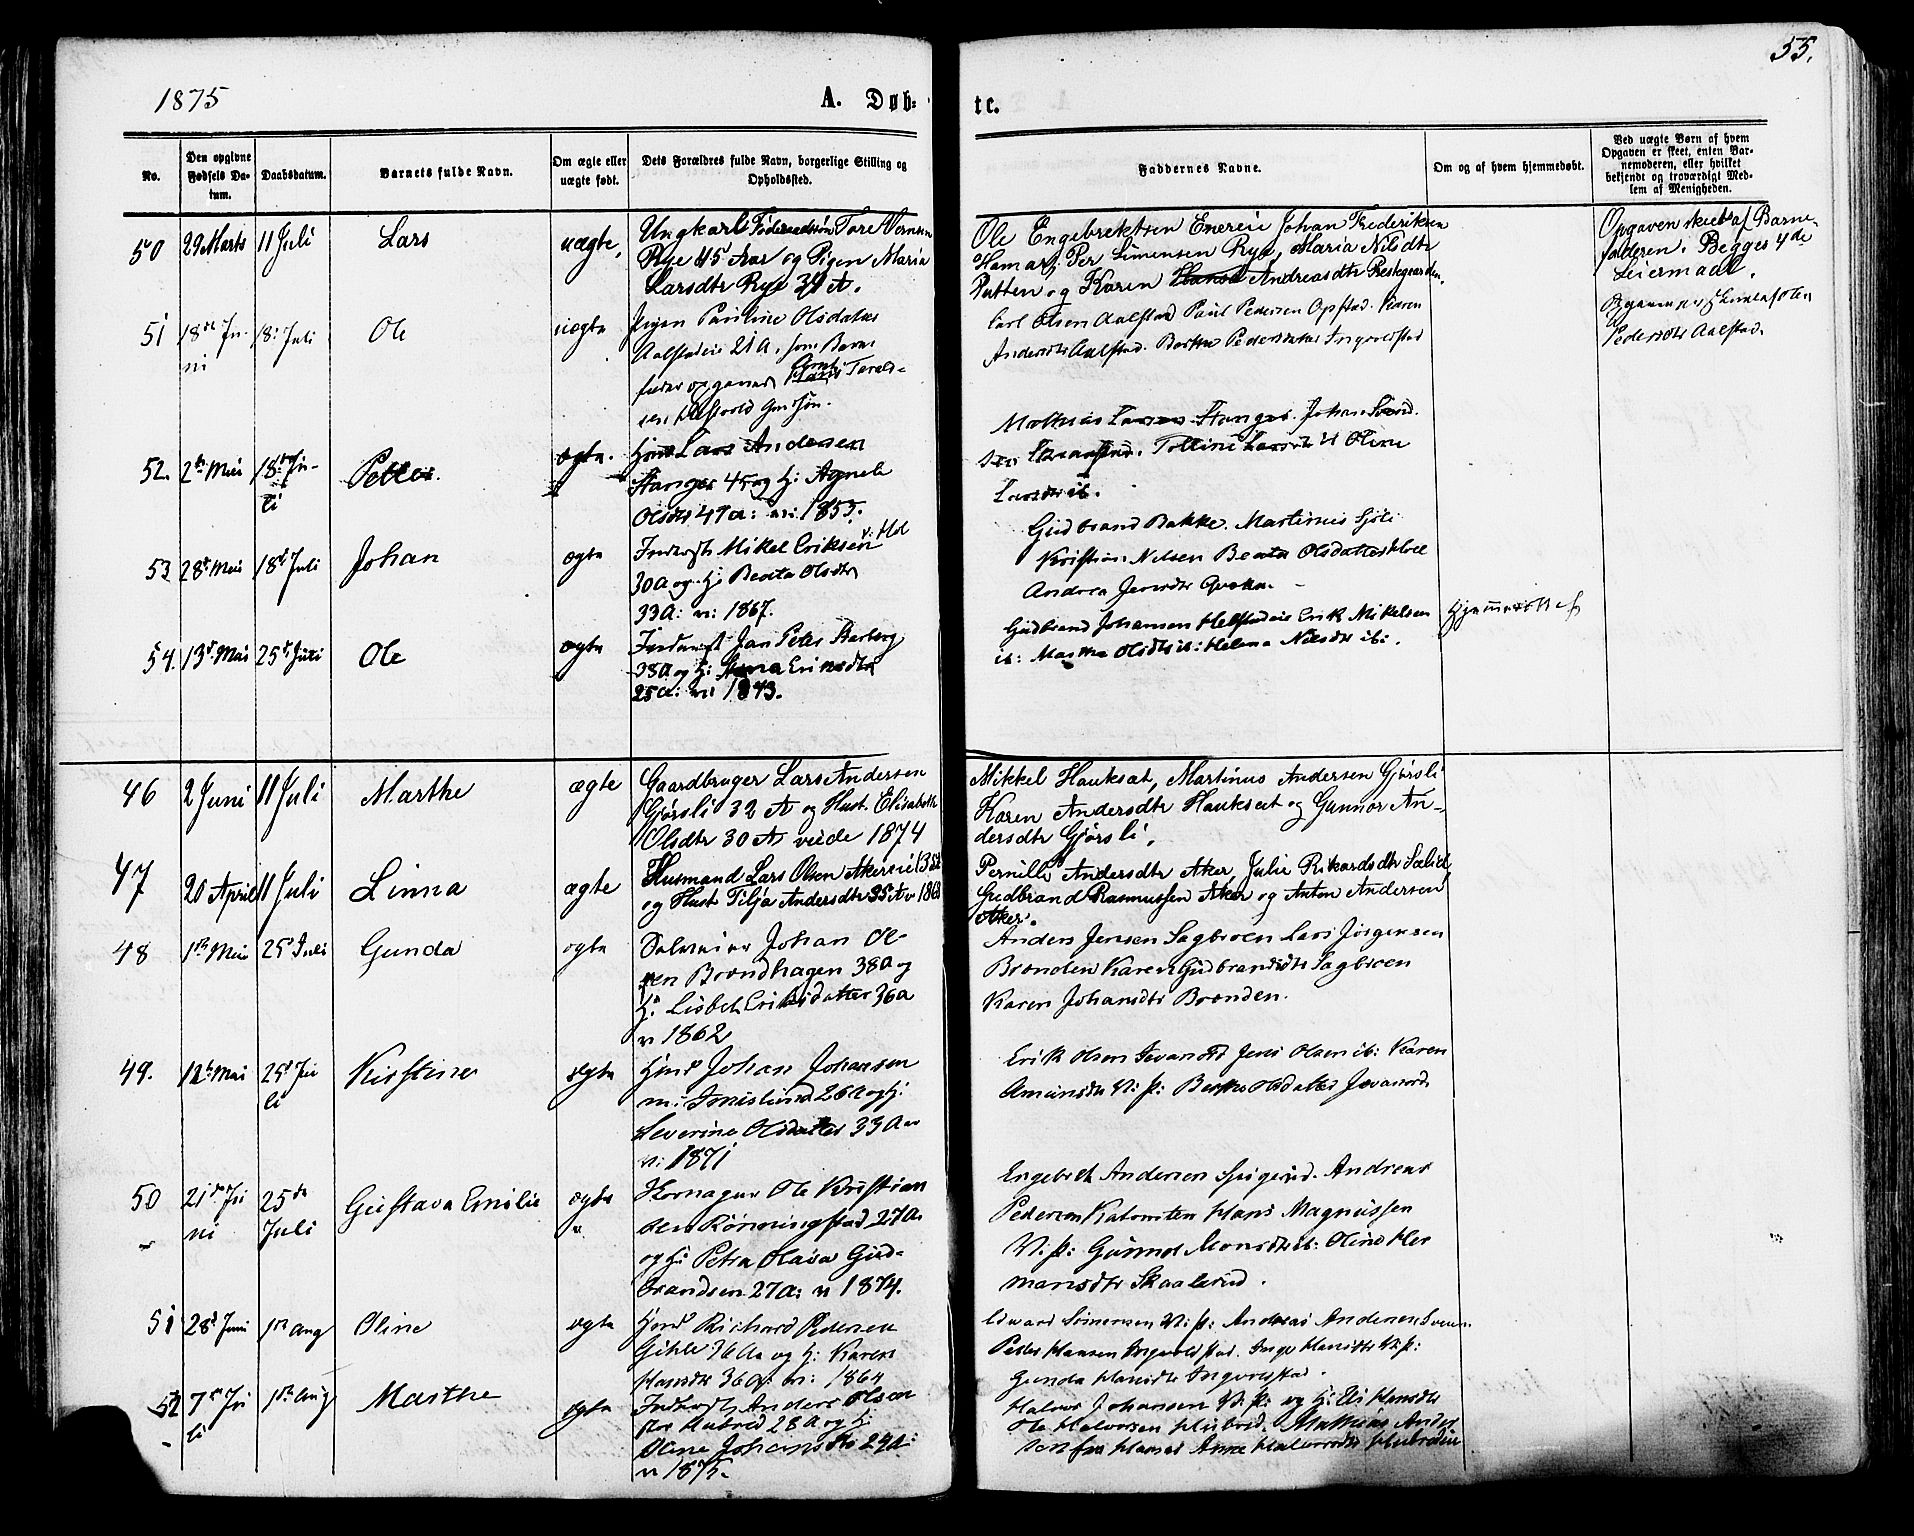 1875
A. Døb-
tc.
55.
No.
Den opgivne Fødsels Da-tum.
Daabsdatum.
Barnets fulde Navn.
Om ægte eller uægte født.
Dets Forældres fulde Navn, borgerlige Stilling og Opholdssted.
Faddernes Navne.
Om og af hvem hjemmedøbt.
Ved uægte Børn af hvem Opgaven er skeet, enten Bar-nemoderen, eller hvilket bekjendt og troværdigt Med-lem af Menigheden.
50 29 Marts 11 Juli Lars uægte,
Ungkarl Tore
Rye 45 Aar og Pigen Maria
Larsdtr Rye 39 A.
Ole Engebretsen Enereie Johan Frederiksen
Hamar, Per Simensen Rye, Maria Nilsdtr
Putten og Karen Andreasdtr Prestegaarden,
Opgaven skeet af Barne-
faderen. Begges 4de
Leiermaal.
51 18de Ju-
ni
18 Juli Ole uægte
Pigen Pauline Olsdatter
21 A. som Barne
fader opgaves
Carl Olsen Aalstad Paul Pedersen Opstad. Karen
Andersdtr Aalstad. Berthe Pedersdatter Ingvoldstad
Pedersdtr Aalstad.
52. 2de Mai 18de Ju-
li
Petter. ægte.
Lars Andersen
Stanger 45 og H: Agnete
Olsdtr 47 a: v: 1853.
Mathias Larsen Stanger. Johan
Larsdtr ib.
53 28de Mai 18de Juli Johan ægte
Inderst Mikel Eriksen
30 A og H: Beata Olsdtr
33 A: v: 1867.
Gudbrand Bakke. Martinus Sjøli
Kristian Nilsen Beata Olsdatter
Andrea Jensdtr
54. 13de Mai 25de Juli Ole ægte
Inderst Jan Peter
38 A og H: Anna Eriksdtr
25 a: v: 1873.
Gudbrand Johansen Erik Mikelsen
ib: Marthe Olsdtr ib: Helene Nilsdtr ib.
46 2 Juni 11 Juli Marthe ægte
Gaardbruger Lars Andersen
Gjørsli 32 A og Hust. Elisabeth
Olsdtr 30 A viede 1874
Mikkel Hauksæt, Martinus Andersen Gjørsli
Karen Andersdtr Hauksæt og Gunnor An-
dersdtr Gjørsli.
47 20 April 11 Juli Linna ægte
Husmand Lars Olsen Akereie 35A
og Hust Tilja Andersdtr 35 A v 1868
Pernille Andersdtr Aker, Julie Rikardsdtr
Gudbrand Rasmussen Aker og Anton Andersen
Aker.
48 1ste Mai 25de Juli Gunda ægte
Selveier Johan Ol-
sen Brændhagen 38 A og
H: Lisbet Eriksdatter 36 a
v 1862
Anders Jensen Sagbroen Lars Jørgensen
Brænden Karen Gudbrandsdtr Sagbroen
Karen Johansdtr Brænden.
49. 12te Mai 25de Ju
li
Kirstine ægte
Johan Johansen
26 a og H:
Severine Olsdatter 33 A
v: 1871
Erik Olsen Jevanord Jens Olsen ib: Karen
Amunsdtr V: p: Berthe Olsdatter Jevanord
50 21de Ju
ni
25de
Juli
Gustava Emilie ægte
Ole Kristian
sen Rønningstad 27 A.
og H: Petra Olava Gud-
brandsen 27 A: v 1874.
Engebret Andersen Spigerud. Andreas
Pedersen Hans Magnussen
V: p: Gunnel Monsdtr ib: Oline Her
mansdtr Skaalerud.
51 28de Juni 1ste Aug Oline ægte
Richard Pedersen
Gihle 36 Aa og H: Karen
Hansdtr 36 A: v: 1864
Edward Simensen V: p: Andreas Andersen
Peder Hansen Ingvoldstad. Inge Hansdtr V: p:
Gunda Hansdtr Ingvoldstad.
52 7de Ju
li
1ste Aug Marthe ægte
Inderst Anders Olsen
28 A og H:
Oline Johansdtr 24 A:
v 1875.
Halvor Johansen V: p: og H: Eli Hansdtr
Ole Halvorsen Hubred. Mathias Ander
sen Anne Halvorsdtr